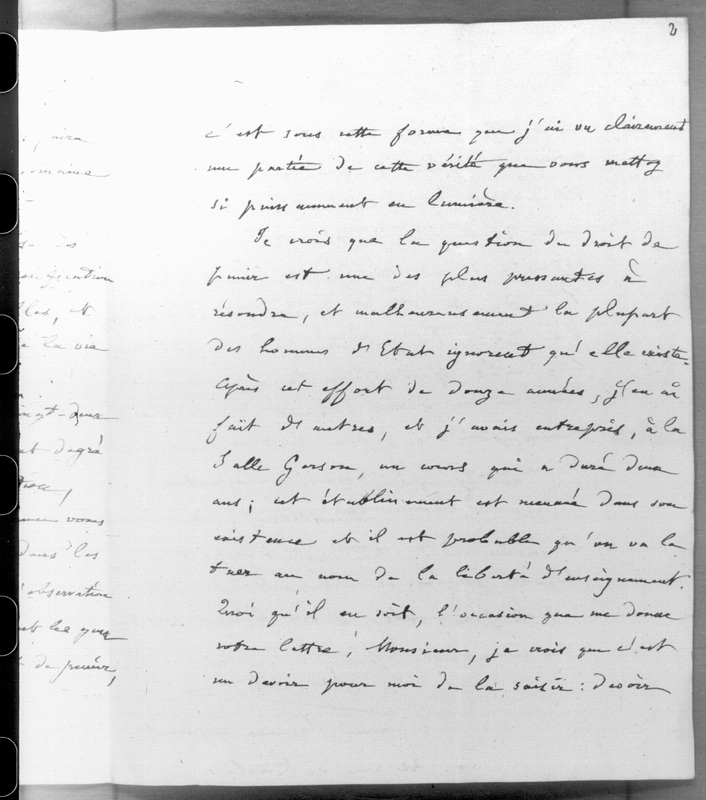 2
c'est sous cette forme que j'ai vu clairement
une partie de cette vérité que vous mettez
si puissamment en lumière.
Je crois que la question du droit de
punir est une des plus pressantes à
résoudre, et malheureusement la plupart
des hommes d'Etat ignorent qu'elle existe.
Après cet effort de douze années, j'en ai
fait d'autres, et j'avais entrepris, à la
Salle Gerson, un cours qui a duré deux
ans; cet établissement est menacé dans son
existence et il est probable qu'on va la
tuer au nom de la liberté d'enseignement.
Quoi qu'il en soit, l'occasion que me donne
votre lettre, Monsieur, je crois que c'est
un devoir pour moi de la saisir: devoir
omaine
et
la vie
vingt-deux
degré
vous
dans les
observation
de punir,